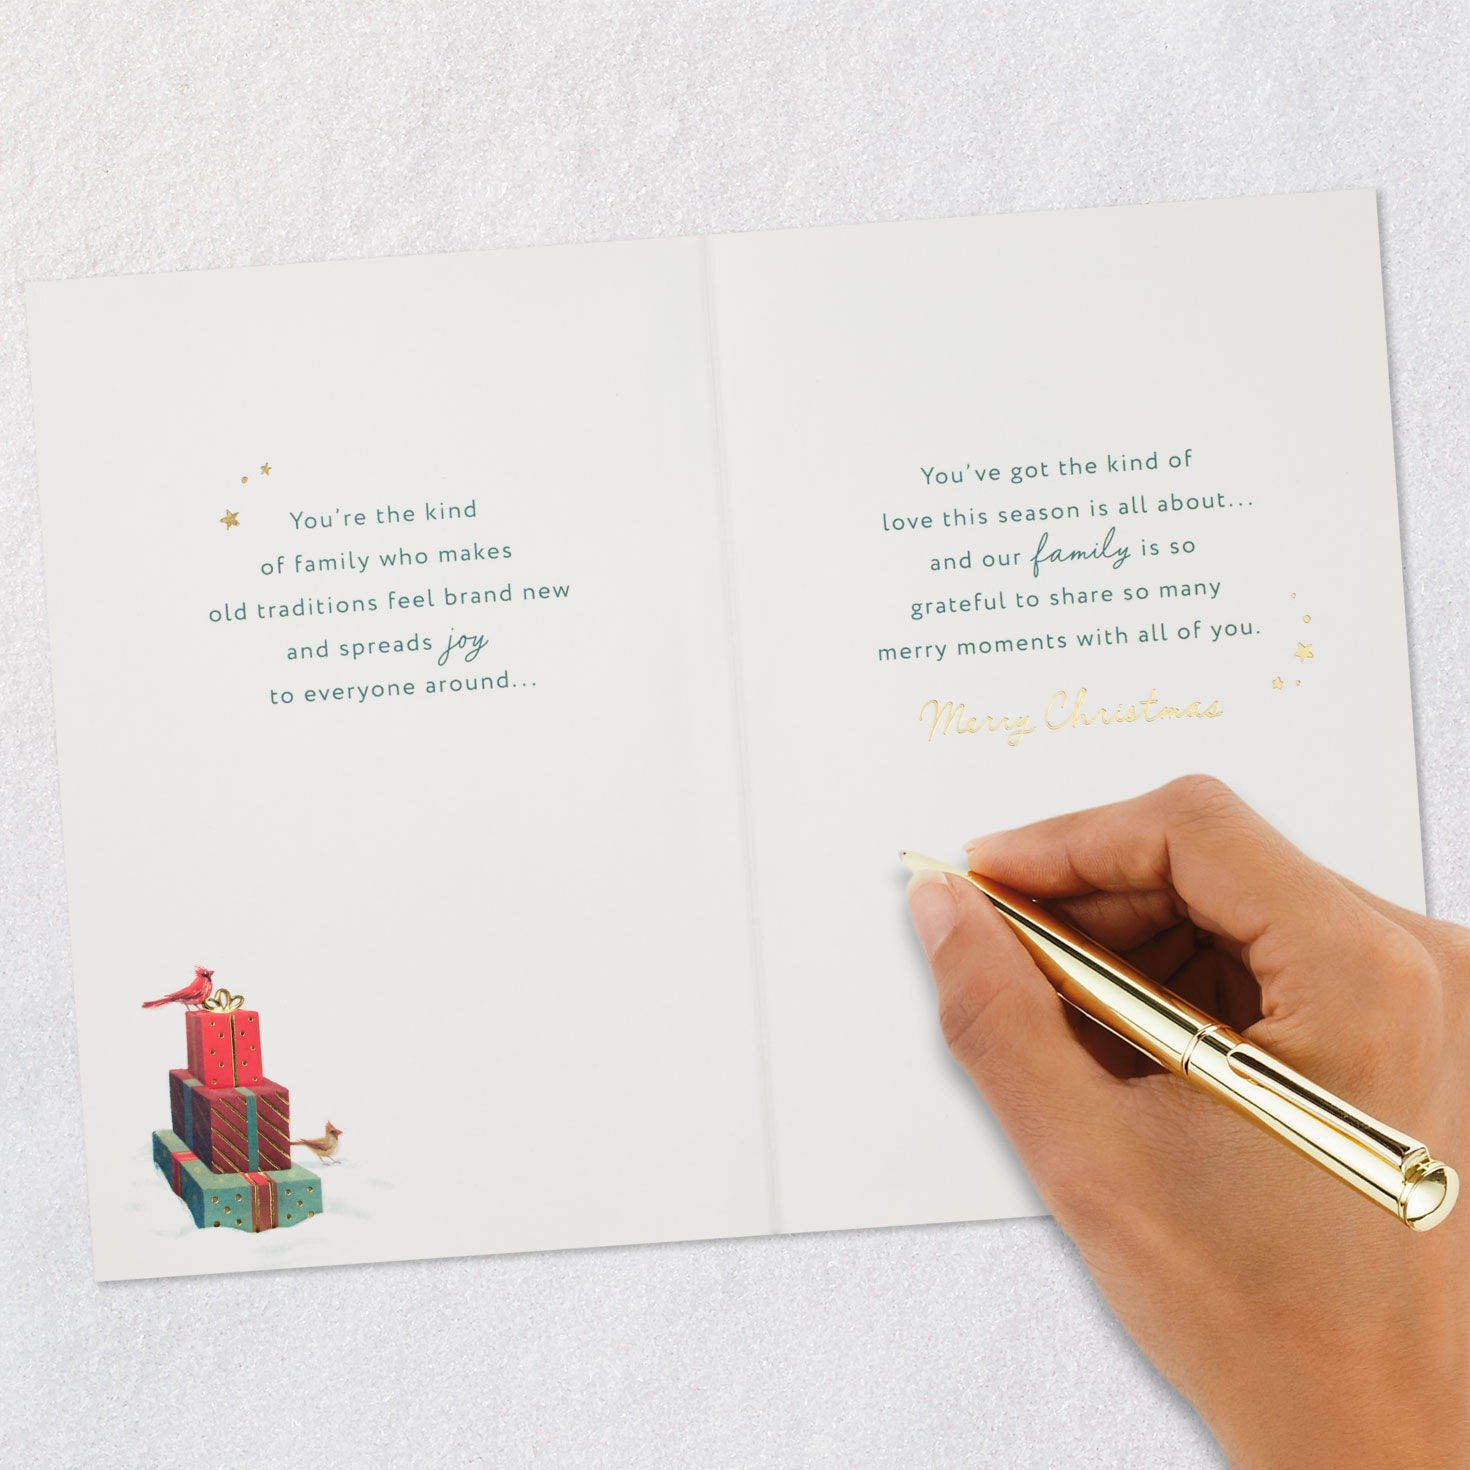 You're the kind
of family who makes
old traditions feel brand new
and spreads joy
to everyone around...
You've got the kind of
love this season is all about...
and our family is so
grateful to share so many
merry moments with all of you.
Merry Christmas